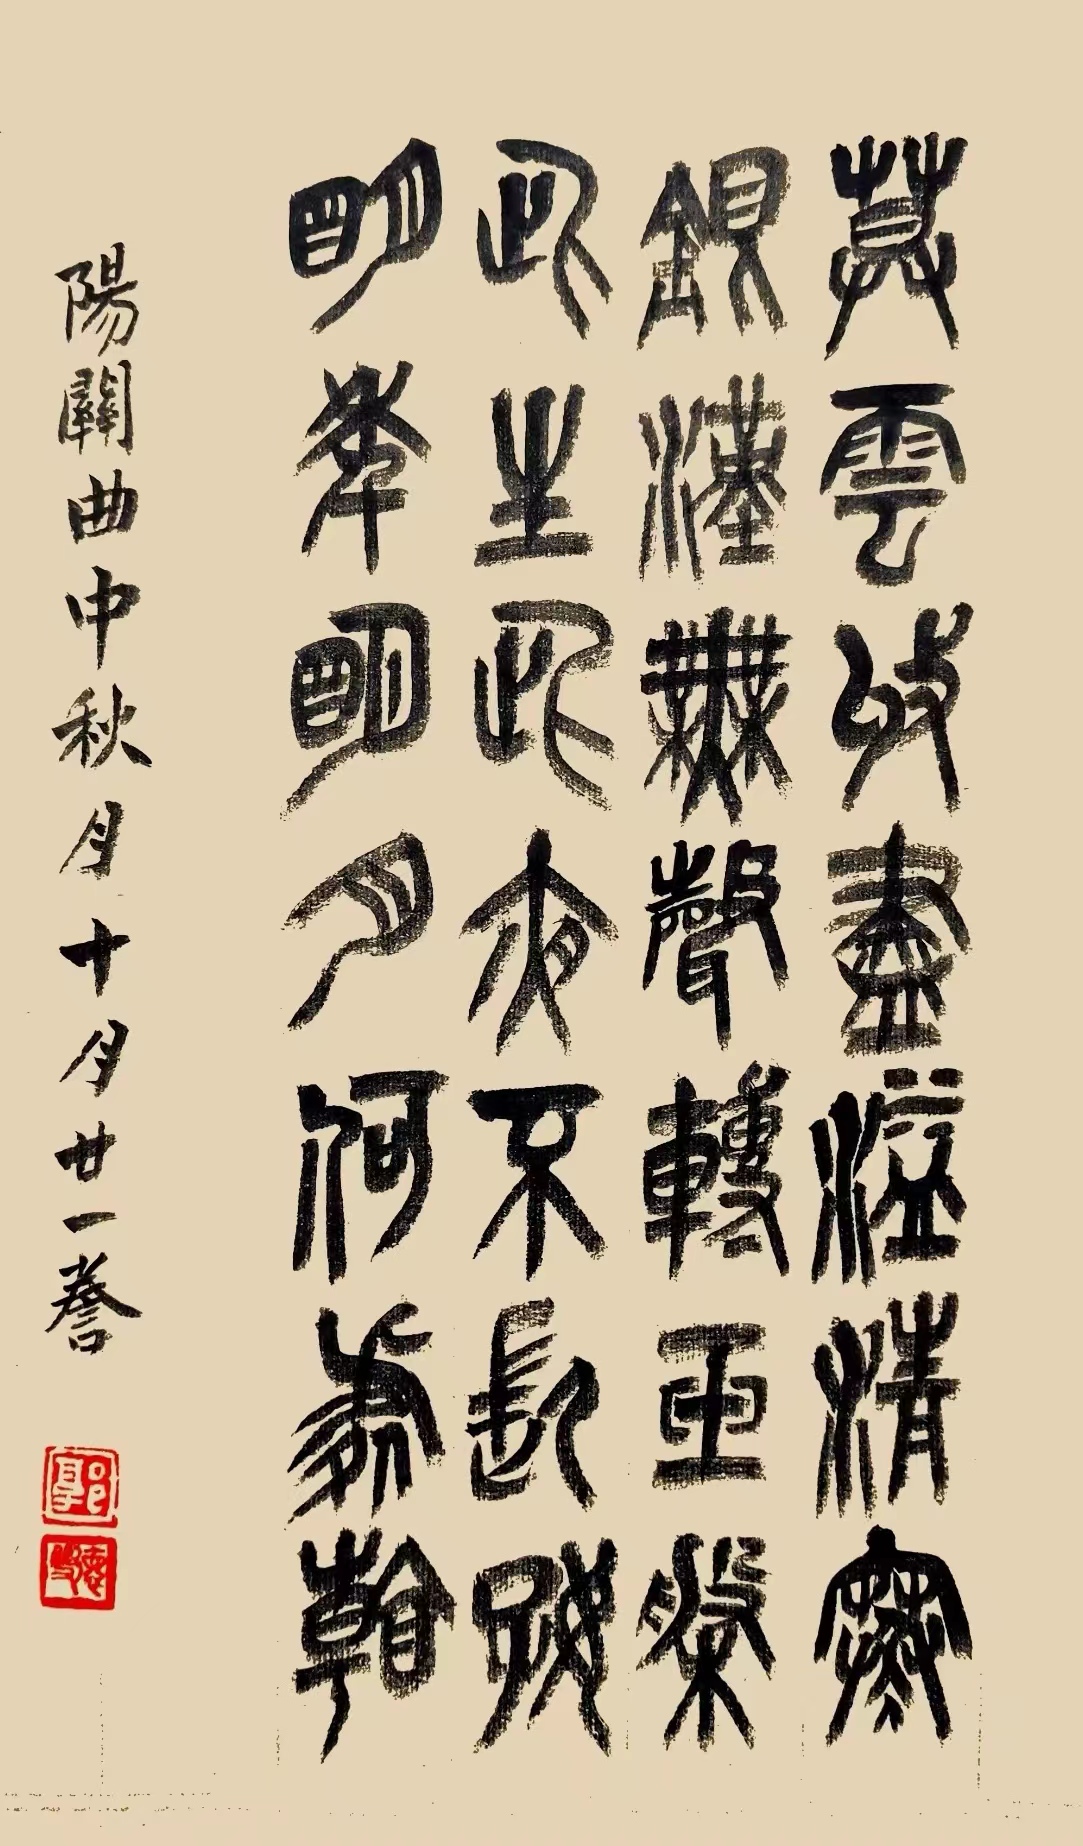 莫雲收盡溢清寒
銀漢無聲轉玉槃
此生此夜不長好
明年明月何處看
陽關曲中秋月十月廿一誊
郭